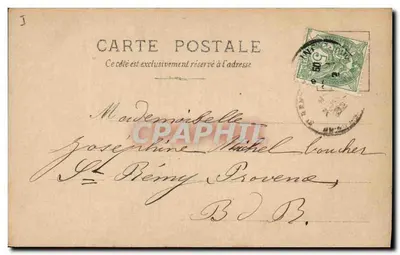 J
CARTE POSTALE
Ce côté est exclusivement réservé à l'adresse
Mademoiselle
CRAPHI
Joséphine Michel boucher
St Rémy Provence
B d R.